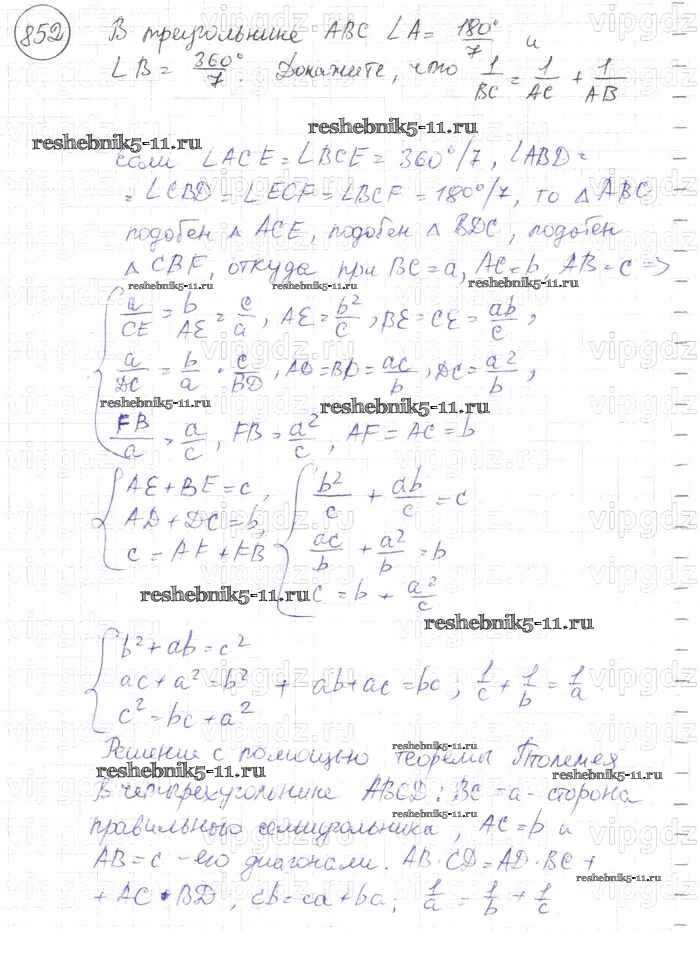 852 В треугольнике ABC ∠A = 180°/7 и
∠B = 360°/7. Докажите, что 1/BC = 1/AC + 1/AB
reshebnik5-11.ru reshebnik5-11.ru
если ∠ACE = ∠BCE = 360°/7, ∠ABD =
= ∠CBD = ∠ECF = ∠BCF = 180°/7, то △ABC
подобен △ ACE, подобен △ BDC, подобен
△ CBF, откуда при BC = a, AC = b, AB = c =>
reshebnik5-11.ru reshebnik5-11.ru reshebnik5-11.ru
a/CE = b/AE = c/a, AE = b²/c, BE = CE = ab/c,
a/DC = b/a · c/BD, AD = BD = ac/b, DC = a²/b,
reshebnik5-11.ru reshebnik5-11.ru
FB/a = a/c, FB = a²/c, AF = AC = b
AE + BE = c, b²/c + ab/c = c
AD + DC = b, ac/b + a²/b = b
c = AF + FB c = b + a²/c
reshebnik5-11.ru reshebnik5-11.ru
b² + ab = c²
ac + a² = b² + ab + ac = bc; 1/c + 1/b = 1/a
c² = bc + a²
vipgdz.ru
Решение с помощью теоремы Птолемея
reshebnik5-11.ru reshebnik5-11.ru reshebnik5-11.ru
В четырехугольнике ABCD: BC = a - сторона
правильного семиугольника, AC = b и
AB = c - его диагонали. AB · CD = AD · BC +
reshebnik5-11.ru reshebnik5-11.ru
+ AC · BD, cb = ca + ba; 1/a = 1/b + 1/c